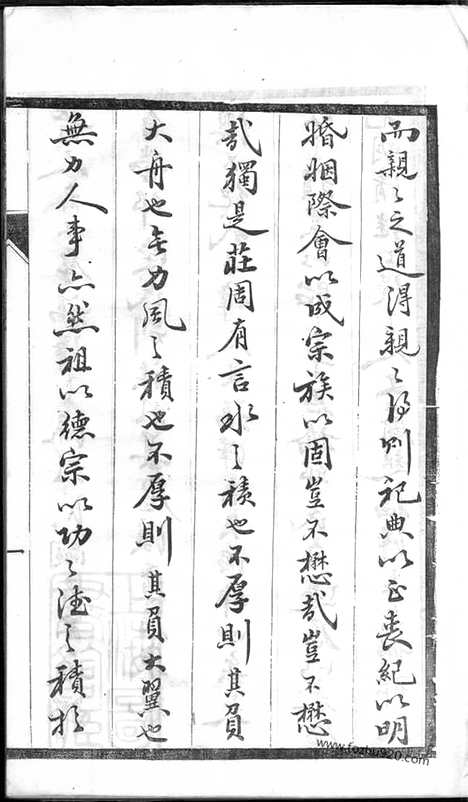 而親〻之道得親〻得則祀典以正喪紀以明
婚姻際會以成宗族以固豈不懋哉豈不懋
哉獨是莊周有言水之積也不厚則其負
大舟也無力風之積也不厚則其負大翼也
無力人事亦然祖以德宗以功〻德之積於
一
www.fozhu920.com